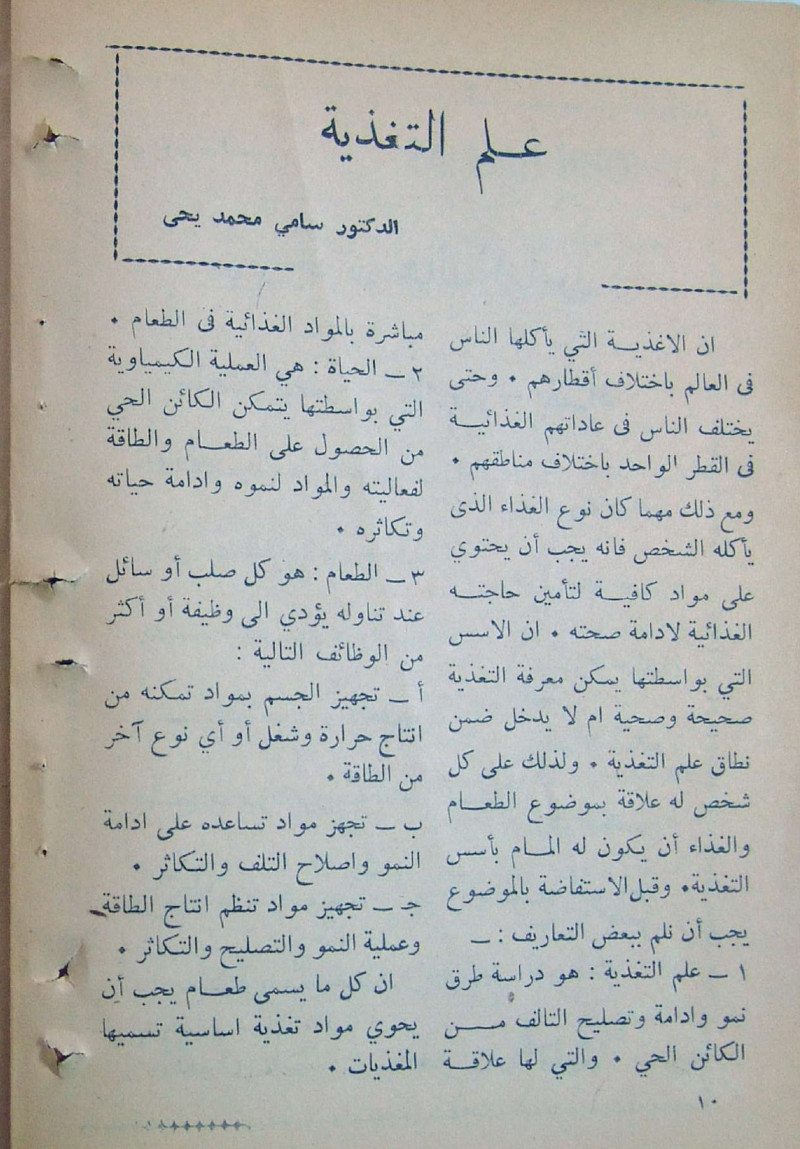 علم التغذية
الدكتور سامي محمد يحى
ان الاغذية التي يأكلها الناس
فى العالم باختلاف أقطارهم ٠ وحتى
يختلف الناس فى عاداتهم الغذائية
فى القطر الواحد باختلاف مناطقهم ٠
ومع ذلك مهما كان نوع الغذاء الذى
يأكله الشخص فانه يجب أن يحتوي
على مواد كافية لتأمين حاجته
الغذائية لادامة صحته ٠ ان الاسس
التي بواسطتها يمكن معرفة التغذية
صحيحة وصحية ام لا يدخل ضمن
نطاق علم التغذية ٠ ولذلك على كل
شخص له علاقة بموضوع الطعام
والغذاء أن يكون له المام بأسس
التغذية٠ وقبل الاستفاضة بالموضوع
يجب أن نلم ببعض التعاريف : ــ
١ ــ علم التغذية : هو دراسة طرق
نمو وادامة وتصليح التالف من
الكائن الحي ٠ والتي لها علاقة
مباشرة بالمواد الغذائية فى الطعام ٠
٢ ــ الحياة : هي العملية الكيمياوية
التي بواسطتها يتمكن الكائن الحي
من الحصول على الطعام والطاقة
لفعاليته والمواد لنموه وادامة حياته
وتكاثره ٠
٣ ــ الطعام : هو كل صلب أو سائل
عند تناوله يؤدي الى وظيفة أو أكثر
من الوظائف التالية :
أ ــ تجهيز الجسم بمواد تمكنه من
انتاج حرارة وشغل أو أي نوع آخر
من الطاقة ٠
ب ــ تجهز مواد تساعده على ادامة
النمو واصلاح التلف والتكاثر ٠
جـ ــ تجهيز مواد تنظم انتاج الطاقة
وعملية النمو والتصليح والتكاثر ٠
ان كل ما يسمى طعام يجب أن
يحوي مواد تغذية اساسية تسميها
المغذيات ٠
١٠